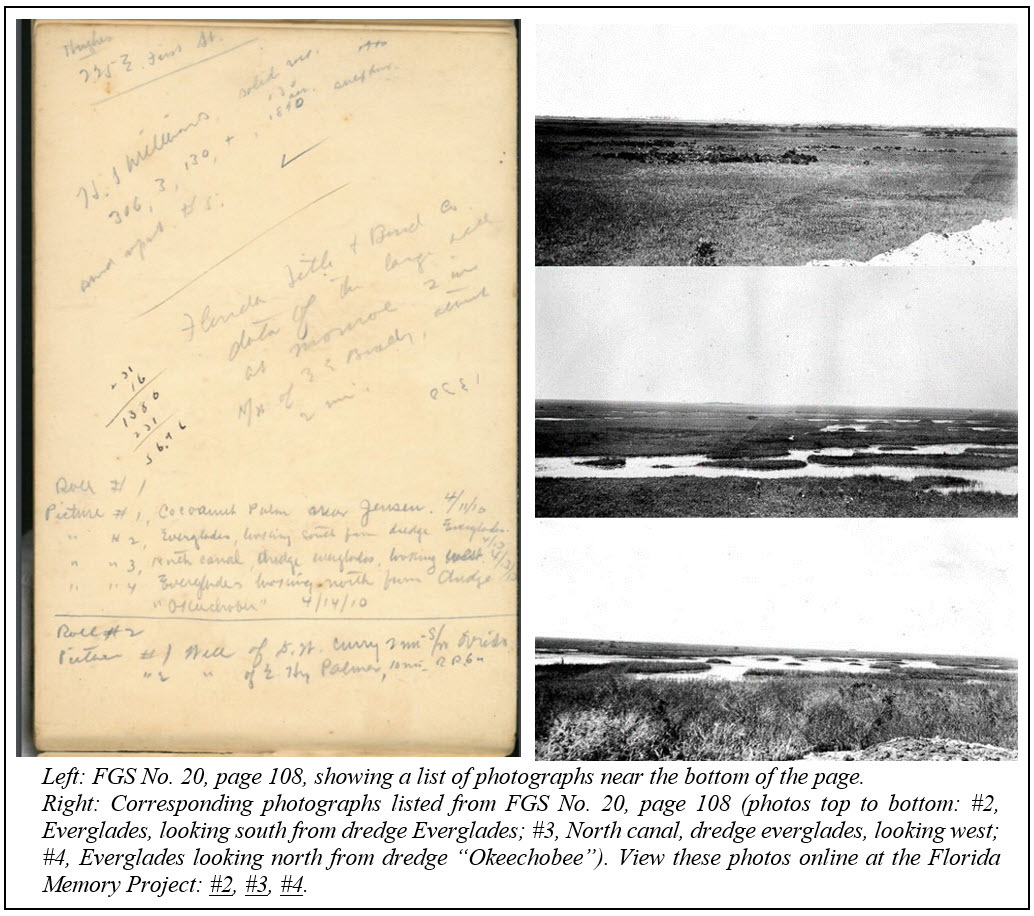 Hughes
225 E. First St.
H. J Williams, solid rock
306, 3, 130, + , 1840 sulphur.
sand
Florida Title & Bond Co.
data of the large well
at Monroe 2 mi
N/W of
2 mi.
221
16
1380
221
Roll # 1
Picture # 1, Cocoanut Palm near Jensen. 4/11/10
" # 2, Everglades, looking south from dredge Everglades.
" " 3, North canal, dredge everglades, looking west.
" " 4 Everglades looking north from dredge
"Okeechobee" 4/14/10
Roll #2
Picture #1 Well of S. W. Curry 2 mi S/W
" 2 " of E. Hy Palmer,
Left: FGS No. 20, page 108, showing a list of photographs near the bottom of the page.
Right: Corresponding photographs listed from FGS No. 20, page 108 (photos top to bottom: #2,
Everglades, looking south from dredge Everglades; #3, North canal, dredge everglades, looking west;
#4, Everglades looking north from dredge “Okeechobee”). View these photos online at the Florida
Memory Project: #2, #3, #4.